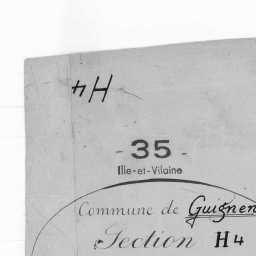 H4
- 35 -
Ille-et-Vilaine
Commune de Guignen
Section H4